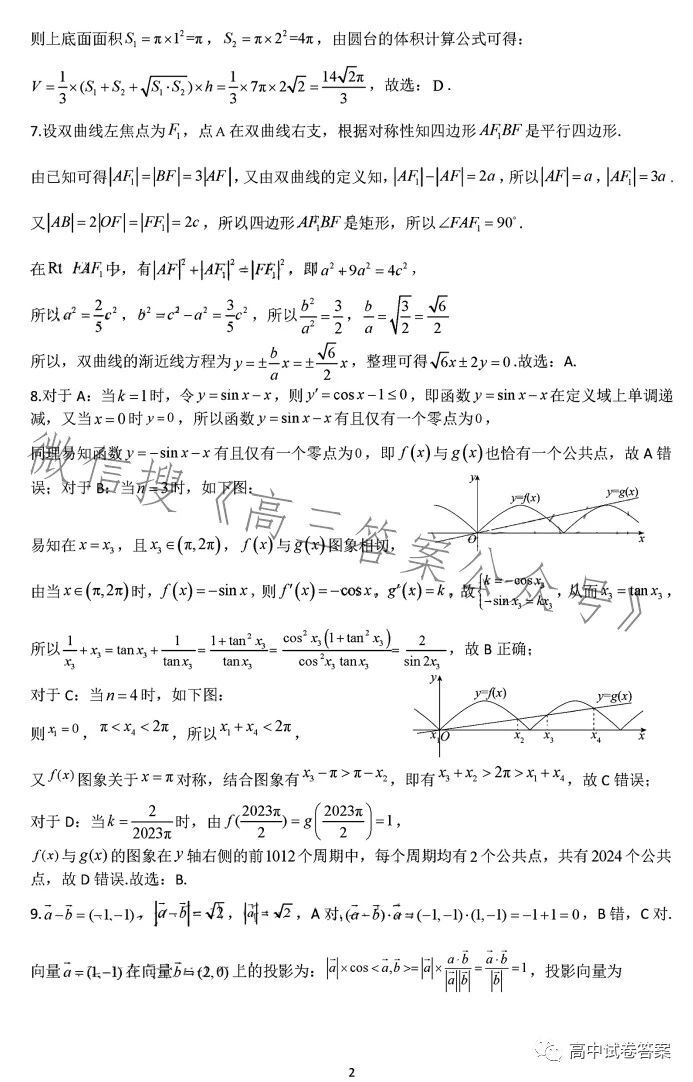 则上底面面积S₁ = π×1²=π，S₂ = π×2²=4π，由圆台的体积计算公式可得：
V = 1/3×(S₁ + S₂ + √(S₁·S₂))×h = 1/3×7π×2√2 = 14√2π/3，故选：D．
7.设双曲线左焦点为F₁，点A在双曲线右支，根据对称性知四边形AF₁BF是平行四边形．
由已知可得|AF₁| = |BF| = 3|AF|，又由双曲线的定义知，|AF₁|−|AF| = 2a，所以|AF| = a，|AF₁| = 3a．
又|AB| = 2|OF| = |FF₁| = 2c，所以四边形AF₁BF是矩形，所以∠FAF₁ = 90°．
在Rt FAF₁中，有|AF|² + |AF₁|² = |FF₁|²，即a² + 9a² = 4c²，
所以a² = 2/5c²，b² = c² − a² = 3/5c²，所以b²/a² = 3/2，b/a = √(3/2) = √6/2
所以，双曲线的渐近线方程为y = ±b/a x = ±√6/2 x，整理可得√6x ± 2y = 0.故选：A.
8.对于A：当k = 1时，令y = sin x − x，则y′ = cos x − 1 ≤ 0，即函数y = sin x − x在定义域上单调递
减，又当x = 0时y = 0，所以函数y = sin x − x有且仅有一个零点为0，
同理易知函数y = −sin x − x有且仅有一个零点为0，即f(x)与g(x)也恰有一个公共点，故A错
误；对于B：当n = 3时，如下图：
y
y=f(x)
y=g(x)
O
x
易知在x = x₃，且x₃ ∈ (π,2π)，f(x)与g(x)图象相切，
由当x ∈ (π,2π)时，f(x) = −sin x，则f′(x) = −cos x，g′(x) = k，故{k = −cos x₃ −sin x₃ = kx₃，从而x₃ = tan x₃，
所以1/x₃ + x₃ = tan x₃ + 1/tan x₃ = (1+tan² x₃)/tan x₃ = cos² x₃(1+tan² x₃)/(cos² x₃ tan x₃) = 2/sin 2x₃，故B正确；
对于C：当n = 4时，如下图：
y
y=f(x)
y=g(x)
x₁ O x₂ x₃ x₄ x
则x₁ = 0，π < x₄ < 2π，所以x₁ + x₄ < 2π，
又f(x)图象关于x = π对称，结合图象有x₃ − π > π − x₂，即有x₃ + x₂ > 2π > x₁ + x₄，故C错误；
对于D：当k = 2/2023π时，由f(2023π/2) = g(2023π/2) = 1，
f(x)与g(x)的图象在y轴右侧的前1012个周期中，每个周期均有2个公共点，共有2024个公共
点，故D错误.故选：B.
9.a⃗−b⃗ = (−1,−1)，|a⃗−b⃗| = √2，|a⃗| = √2，A对，(a⃗−b⃗)·a⃗ = (−1,−1)·(1,−1) = −1+1 = 0，B错，C对.
向量a⃗ = (1,−1)在向量b⃗ = (2,0)上的投影为：|a⃗|×cos<a⃗,b⃗> = |a⃗|×a⃗·b⃗/(|a⃗||b⃗|) = a⃗·b⃗/|b⃗| = 1，投影向量为
微信搜《高三答案公众号》
高中试卷答案
2